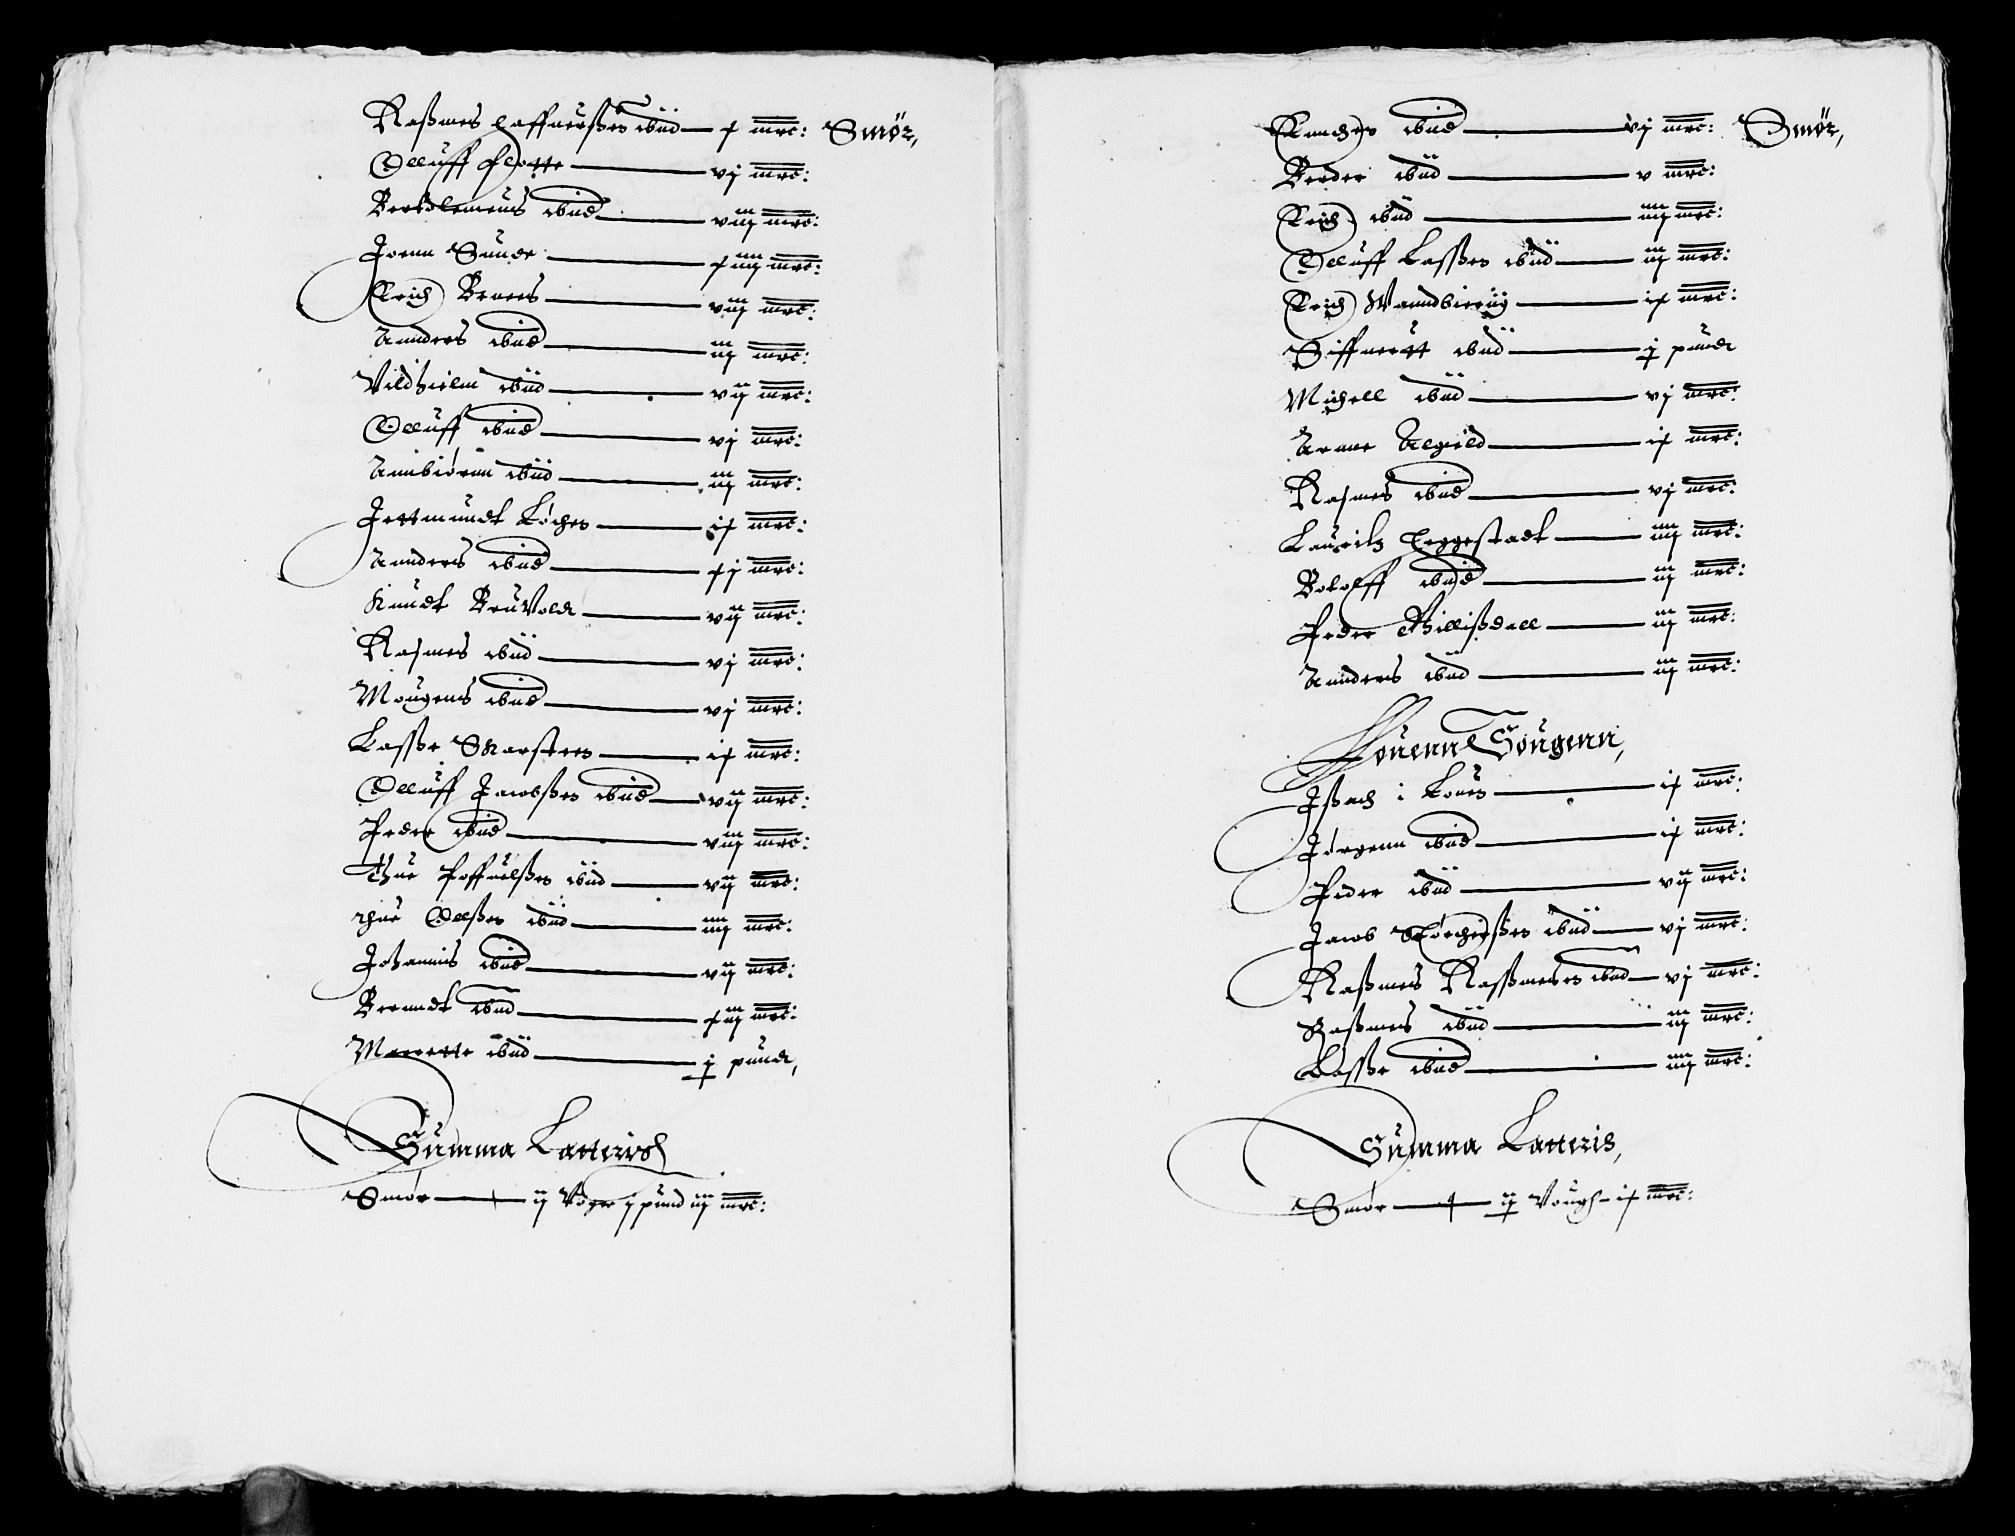 Rasmes haffuersßes ibid — x mrc: Smør,
Olluff Flotte — vj mrc:
Bertelemeus ibid — viij mrc:
Joenn Sunde — xiiij mrc:
Erich Bruees — viij mrc:
Anders ibid — iij mrc:
Vildhielm ibid — vij mrc:
Olluff ibid — vj mrc:
Annbiørnn ibid — iij mrc:
Jettmundt Løches — ix mrc:
Anders ibid — xj mrc:
Knudt Bruuold — vij mrc:
Rasmes ibid — vj mrc:
Mougens ibid — vj mrc:
Lasse Skarstees — ix mrc:
Olluff Jacobßes ibid — vij mrc:
Peder ibid — viij mrc:
Thue Poffuelßes ibid — vij mrc:
Thue Olßes ibid — iiij mrc:
Johannis ibid — vij mrc:
Berendt ibid — xiij mrc:
Merrette ibid — j pund,
Summa Latteris
Smør — ij Voger j pund iij mrc:
ibid — vj mrc: Smør,
Peder ibid — v mrc:
Erich ibid — iiij mrc:
Olluff Laßes ibid — iij mrc:
Erich Vanndbierig — ix mrc:
Siffuertt ibid — j pund
Michell ibid — vj mrc:
Arne Algield — ix mrc:
Rasmes ibid — vj mrc:
Lauritz Eggestadt — iiij mrc:
Botolff ibid — iij mrc:
Peder Gillißdall — iij mrc:
Anders ibid — iij mrc:
Houenn Sougenn,
Jsach i Loues — ix mrc:
Jørgenn ibid — ix mrc:
Peder ibid — vij mrc:
Jacob Størchersßes ibid — vj mrc:
Rasmes Rasßmeses ibid — vj mrc:
Rasmes ibid — iij mrc:
Lasse ibid — iiij mrc:
Summa Latteris,
Smør — ij Vough ix mrc: